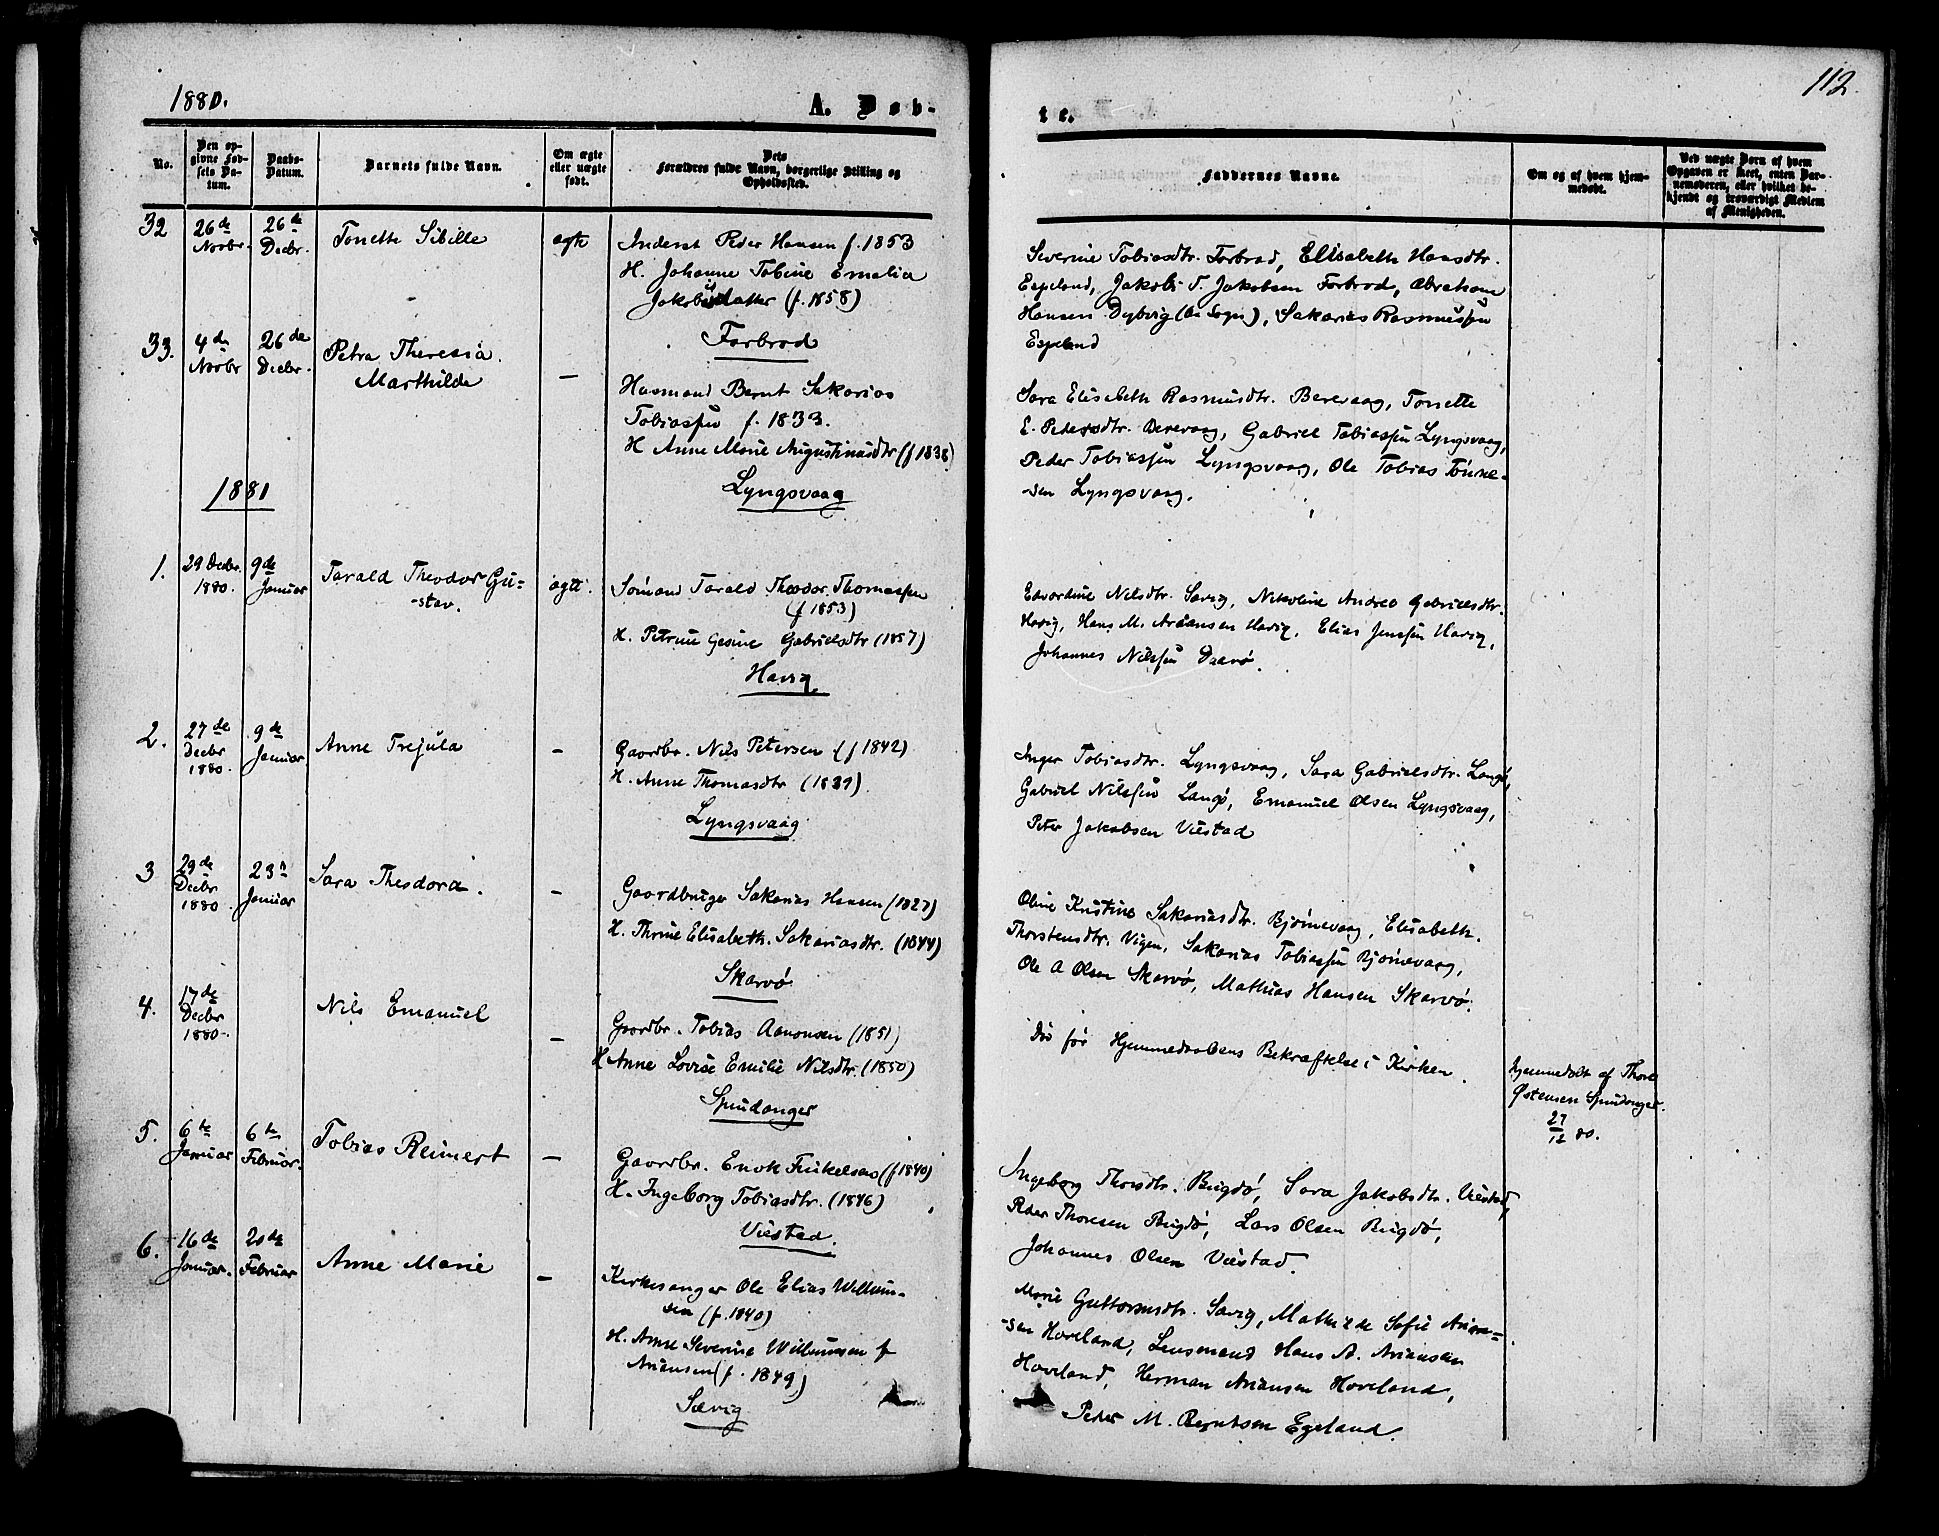 1880.
A. Døb-
No.
Den op-
givne Fød-
sels Da-
tum.
Daabs-
Datum.
Barnets fulde Navn.
Om ægte
eller uægte
født.
Dets
Forældres fulde Navn, borgerlige Stilling og
Opholdssted.
32
26de
Novbr.
26de
Decbr.
Tonette Sibille
ægte
Inderst Peder Hansen f. 1853
H. Johanne Tobine Emalia
Jakobsdatter (f. 1858)
Forbrod
33.
4de
Novbr
26de
Decbr.
Petra Theresia
Marthilde
—
Husmand Bernt Sakarias
Tobiassen f. 1833.
H Anne Marie Augustinusdtr (f 1838)
Lyngsvaag
1881
1.
29 Decbr.
1880.
9de
Januar
Tarald Theodor Gu-
-stav.
ægte.
Sømand Tarald Theodor Thomassen
(f 1853)
H. Petrine Gesine Gabrielsdtr (1857)
Havig
2.
27de
Decbr
1880.
9de
Januar
Anne Trejula
—
Gaardbr. Nils Petersen (f 1842)
H. Anne Thomasdtr (1839)
Lyngsvaag
3
29de
Decbr
1880.
23de
Januar
Sara Theodora.
—
Gaardbruger Sakarias Hansen (1827)
H. Thrine Elisabeth Sakariasdtr. (1844)
Skarvø
4.
17de
Decbr
1880.
Nils Emanuel
—
Gaardbr. Tobias Aanonsen (1851)
H Anne Lovise Emilie Nilsdtr. (1850)
Spindanger
5.
6te
Januar
6te
Februar.
Tobias Reinert
—
Gaardbr. Enok Terkelsen (f 1840)
H. Ingeborg Tobiasdtr. (1846)
Viestad.
6.
16de
Januar.
20de
Februar
Anne Marie
—
Kirkesanger Ole Elias Willum-
sen (f. 1840)
H. Anne Severine Willumsen f
Ariansen (f. 1849)
Sævig
112.
te.
Faddernes Navne.
Om og af hvem hjem-
medøbt.
Ved uægte Børn af hvem
Opgaven er skeet, enten Bar-
nemoderen, eller hvilket be-
kjendt og troværdigt Medlem
af Menigheden.
Severine Tobiasdtr. Forbrod, Elisabeth Hansdtr.
Espeland, Jakob T. Jakobsen Forbrod, Abraham
Hansen Dybvig (Aa Sogn), Sakarias Rasmussen
Espeland
Sara Elisabeth Rasmusdtr. Berevaag, Tonette
E. Pedersdtr. Berevaag, Gabriel Tobiassen Lyngsvaag,
Peder Tobiassen Lyngsvaag, Ole Tobias Tønne-
sen Lyngsvaag.
Edvardine Nilsdtr. Sævig, Nikoline Andrea Gabrielsdtr.
Havig, Hans M. Ariansen Havig, Elias Jenssen Havig,
Johannes Nilssen
Inger Tobiasdtr. Lyngsvaag, Sara Gabrielsdtr. Langø,
Gabriel Nilssen Langø, Emanuel Olsen Lyngsvaag,
Peter Jakobsen Viestad
Oline Kristine Sakariasdtr. Bjørnevaag, Elisabeth
Thorstensdtr. Vigen, Sakarias Tobiassen Bjørnevaag,
Ole A Olsen Skarvø, Mathias Hansen Skarvø.
Død før Hjemmedaabens Bekræftelse i Kirken.
Hjemmedøbt af Thore
Østensen Spindanger.
27/12 80.
Ingeborg Thorsdtr. Bugdø, Sara Jakobsdtr. Viestad,
Peder Thoresen Bugdø, Lars Olsen Bugdø,
Johannes Olsen Viestad.
Marie Guttormsdtr. Sævig, Mathilde Sofie Arian-
-sen Hoveland, Lensmand Hans A. Ariansen
Hoveland, Herman Ariansen Hoveland,
Peder M. Berntsen Egeland.